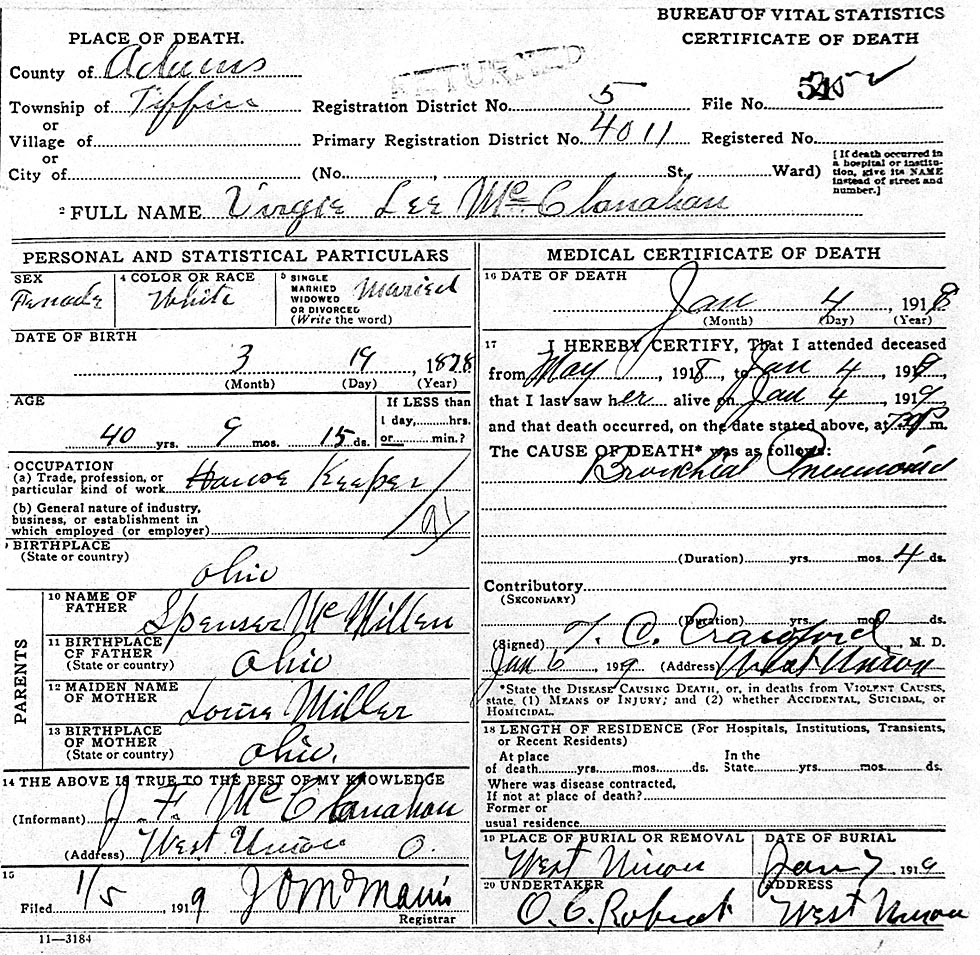 BUREAU OF VITAL STATISTICS
PLACE OF DEATH. CERTIFICATE OF DEATH
County of Adams
RETURNED
Township of Tiffin Registration District No. 5 File No.
or
Village of Primary Registration District No. 4011 Registered No.
or
City of (No. , St., Ward) [If death occurred in a hospital or institution, give its NAME instead of street and number.]
2 FULL NAME Virgie Lee McClanahan
PERSONAL AND STATISTICAL PARTICULARS
SEX Female
4 COLOR OR RACE White
5 SINGLE MARRIED WIDOWED OR DIVORCED (Write the word) Married
DATE OF BIRTH
3 19, 1878
(Month) (Day) (Year)
AGE If LESS than
1 day, hrs.
40 yrs. 9 mos. 15 ds. or min.?
OCCUPATION
(a) Trade, profession, or
particular kind of work House Keeper
(b) General nature of industry,
business, or establishment in
which employed (or employer) 91
BIRTHPLACE
(State or country) Ohio
PARENTS
10 NAME OF FATHER Spenser McMillen
11 BIRTHPLACE OF FATHER (State or country) Ohio
12 MAIDEN NAME OF MOTHER Louise Miller
13 BIRTHPLACE OF MOTHER (State or country) Ohio.
14 THE ABOVE IS TRUE TO THE BEST OF MY KNOWLEDGE
(Informant) J. F. McClanahan
(Address) West Union O.
15
Filed 1/5 1919 J O McManis
Registrar
11—3184
MEDICAL CERTIFICATE OF DEATH
16 DATE OF DEATH
Jan 4, 191
(Month) (Day) (Year)
17 I HEREBY CERTIFY, That I attended deceased
from May, 1918, to Jan 4, 1919
that I last saw her alive on Jan 4, 1919
and that death occurred, on the date stated above, at m.
The CAUSE OF DEATH* was as follows:
Bronchial Pneumonia
(Duration) yrs. mos. 4 ds.
Contributory
(SECONDARY)
(Duration) yrs. mos. ds.
(Signed) T. C. Crawford M. D.
Jan 6 1919 (Address) West Union
*State the DISEASE CAUSING DEATH, or, in deaths from VIOLENT CAUSES,
state (1) MEANS OF INJURY; and (2) whether ACCIDENTAL, SUICIDAL, or
HOMICIDAL.
18 LENGTH OF RESIDENCE (For Hospitals, Institutions, Transients,
or Recent Residents)
At place In the
of death yrs. mos. ds. State yrs. mos. ds.
Where was disease contracted,
If not at place of death?
Former or
usual residence
19 PLACE OF BURIAL OR REMOVAL DATE OF BURIAL
West Union Jan 7 1919
20 UNDERTAKER ADDRESS
O. C. West Union